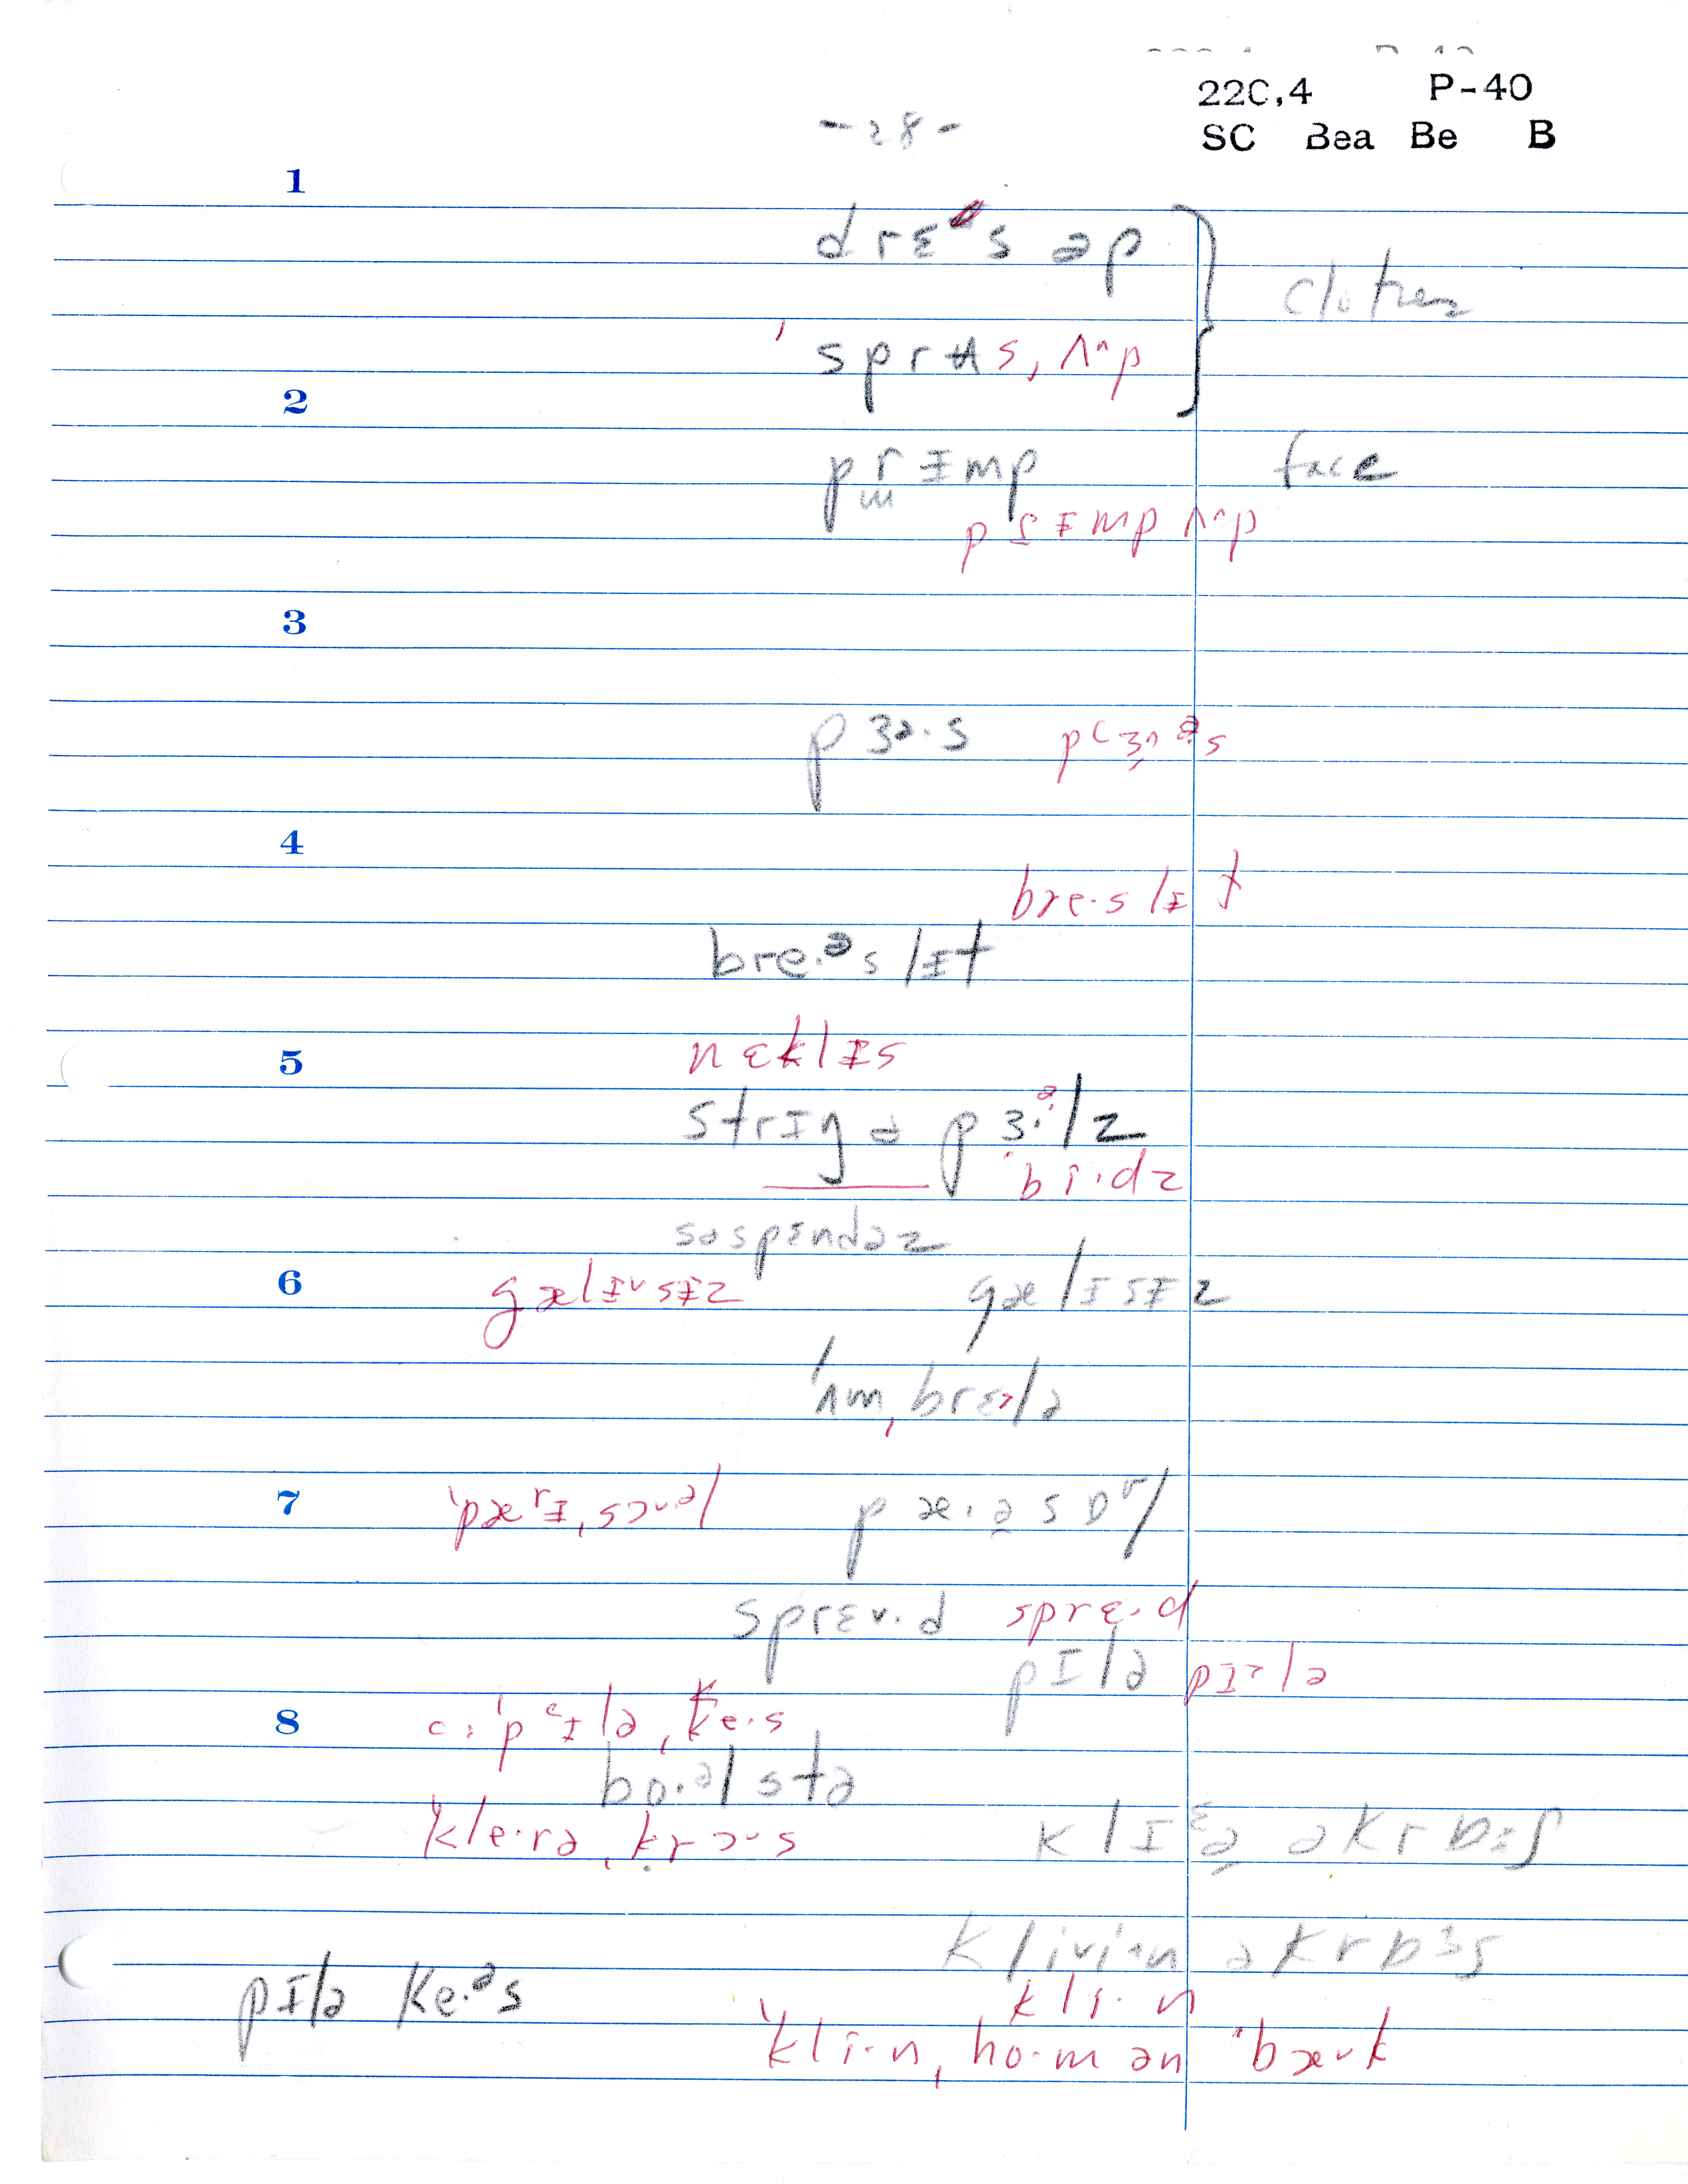 220,4 P-40
-28- SC Bea Be B
1
drɛᵊs əp
clothes
ˈsprɑs,ʌ^p
2
prɪmp face
prɪmp ʌ^p
3
pɜə·s pʽɜ^ᵊs
4
bre·slɪt
bre·ᵊslɪt
5 nɛklɪs
strɪŋ ə pɜ·ᵊlz
bi·dz
səspɛndəz
6 gælɪ˅sɪz gælɪsɪz
ˈʌmˌbrɛlə
7 pæ·əsɒl
sprɛ˅·d sprɛ·d
pɪlə pɪ>lə
8 c: ˈpɪlə,ke·s
bo·əlstə
ˈkle·rə,krɔ˅s klɪə əkrɒs
kli˅i^n əkrɒs
pɪlə ke·ᵊs kli·n
ˈkli·n,ho·m ən ˈbæ˅k